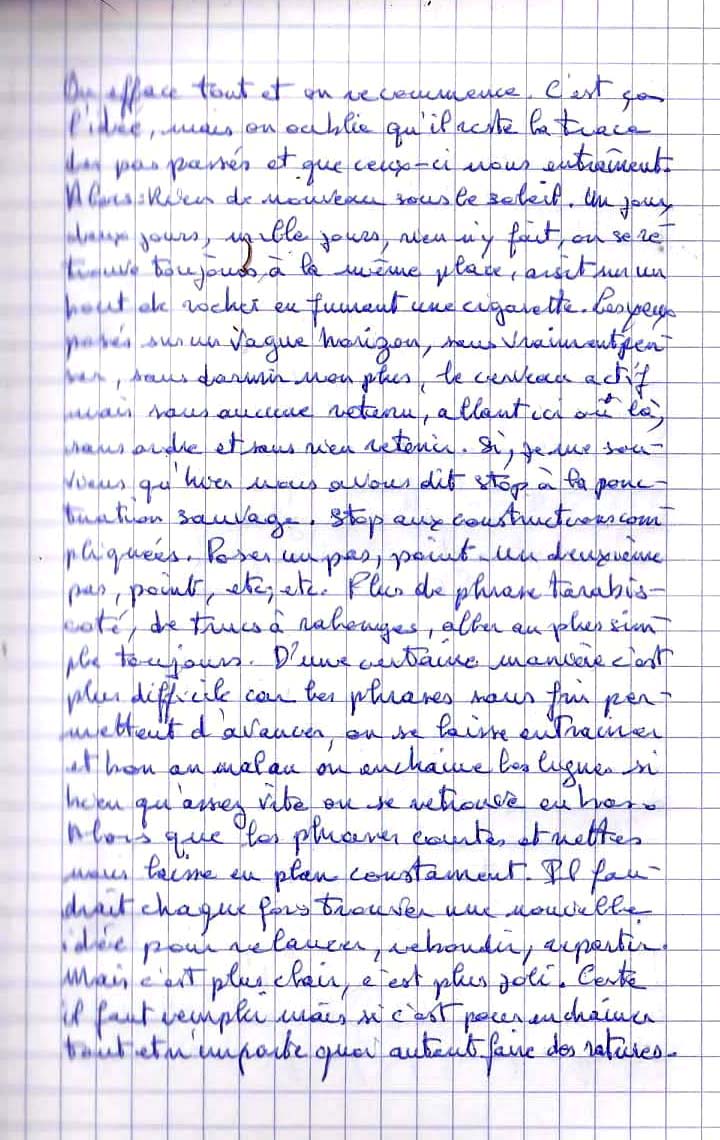 On efface tout et on recommence. C'est ça
l'idée, mais on oublie qu'il reste la trace
des pas passés et que ceux-ci nous entraînent.
Alors : Rien de nouveau sous le soleil. Un jour,
deux jours, mille jours, rien n'y fait, on se re-
trouve toujours à la même place, assit sur un
bout de rocher en fumant une cigarette. Les yeux
posés sur un vague horizon, sans vraiment pen-
ser, sans dormir non plus, le cerveau actif
mais sans aucune retenu, allant ici où là,
sans ordre et sans rien retenir. Si, je me sou-
viens qu'hier nous avons dit stop à la ponc-
tuation sauvage. Stop aux constructions com-
pliquées. Poser un pas, point. Un deuxième
pas, point, etc, etc. Plus de phrase tarabis-
coté, de trucs à ralonges, aller au plus sim-
ple toujours. D'une certaine manière c'est
plus difficile car les phrases sans fin per-
mettent d'avancer, on se laisse entrainer
et bon an mal an on enchaine les lignes si
bien qu'assez vite on se retrouve en bas.
Alors que les phrases courtes et nettes
nous laisse en plan constament. Il fau-
drait chaque fois trouver une nouvelle
idée pour relancer, rebondir, repartir.
Mais c'est plus clair, c'est plus joli. Certe
il faut remplir mais si c'est pour enchainer
tout et n'importe quoi autant faire des ratures.